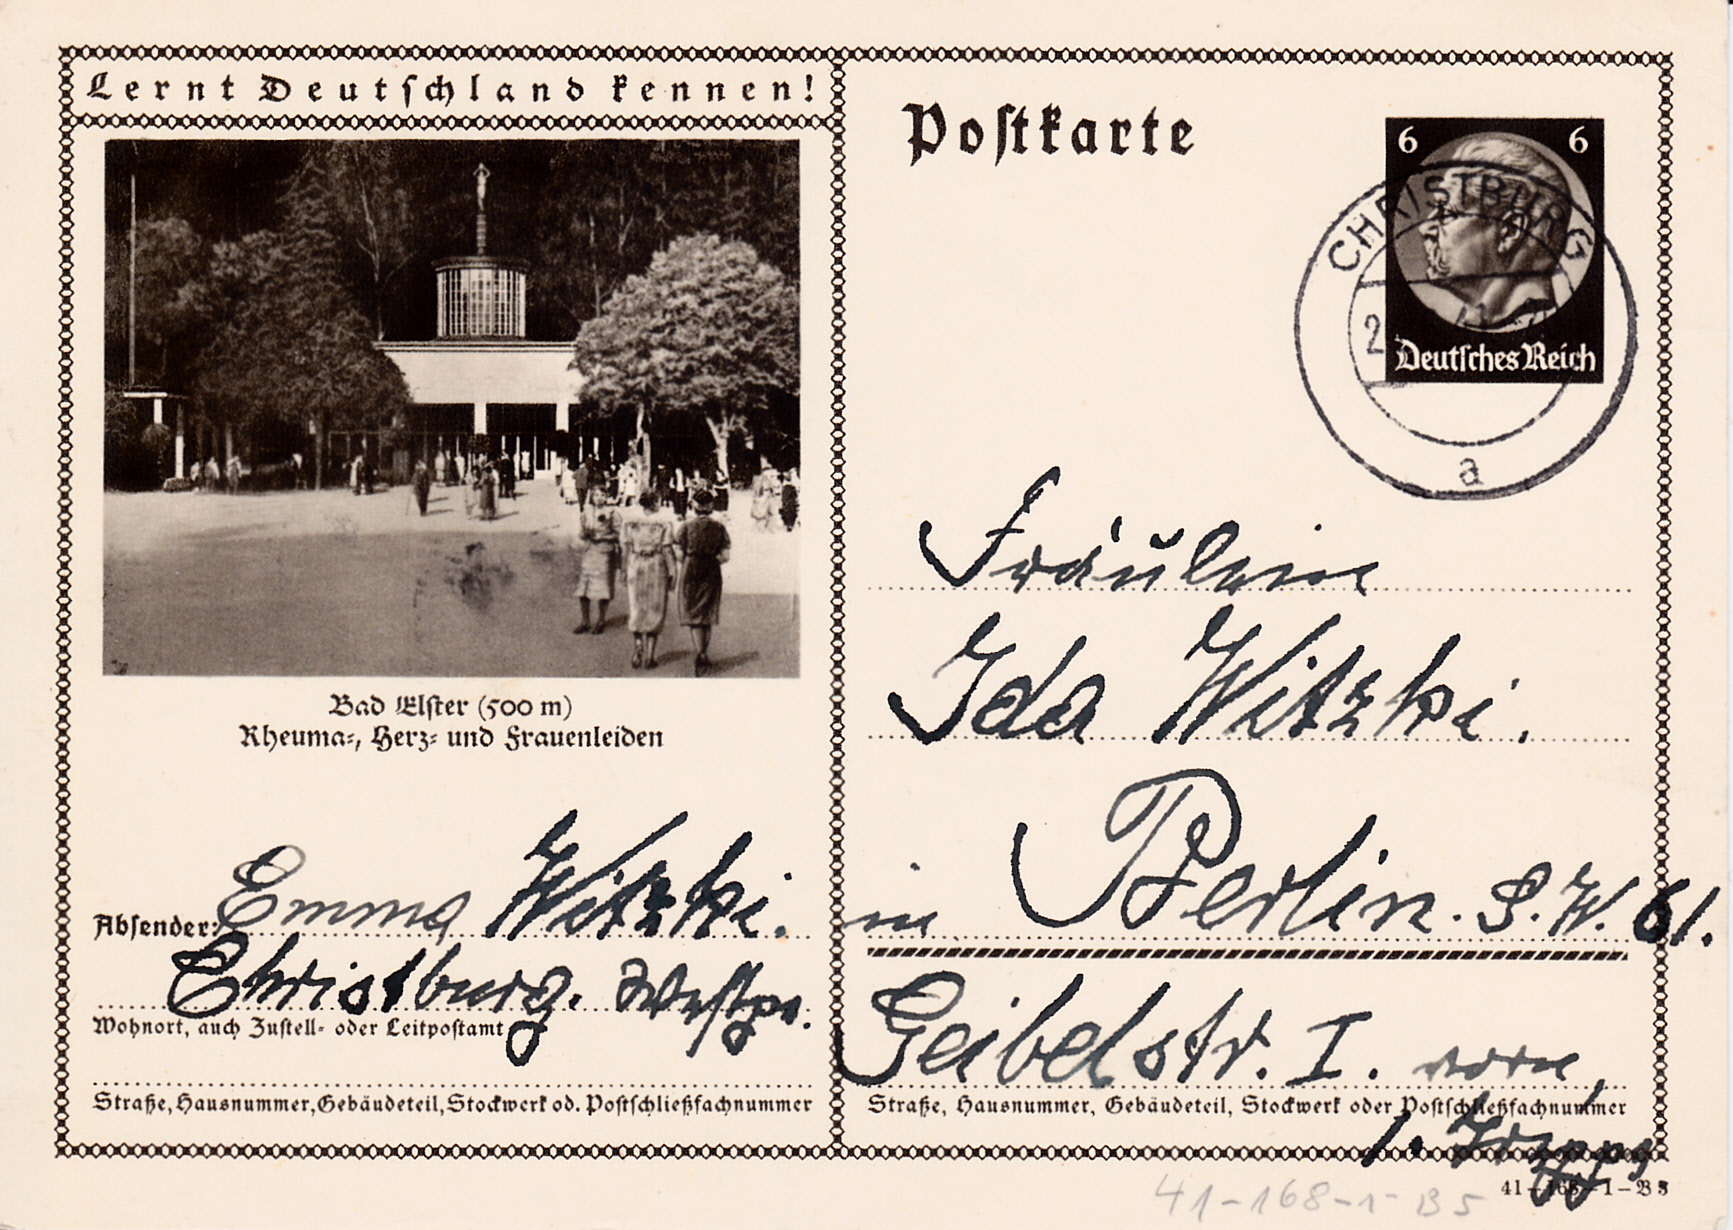 Lernt Deutschland kennen!
Bad Elster (500 m)
Rheuma-, Herz- und Frauenleiden
Absender: Emma Witzki.
Christburg. Westpr.
Wohnort, auch Zustell- oder Leitpostamt
Straße, Hausnummer, Gebäudeteil, Stockwerk od. Postschließfachnummer
Postkarte
6 6
Deutsches Reich
CHRISTBURG
a
Fräulein
Ida Witzki.
in Berlin. S.W. 61.
Geibelstr. I. vorn,
Straße, Hausnummer, Gebäudeteil, Stockwerk oder Postschließfachnummer
1. Treppe
41-168-1-B 5
41-168-1-B5